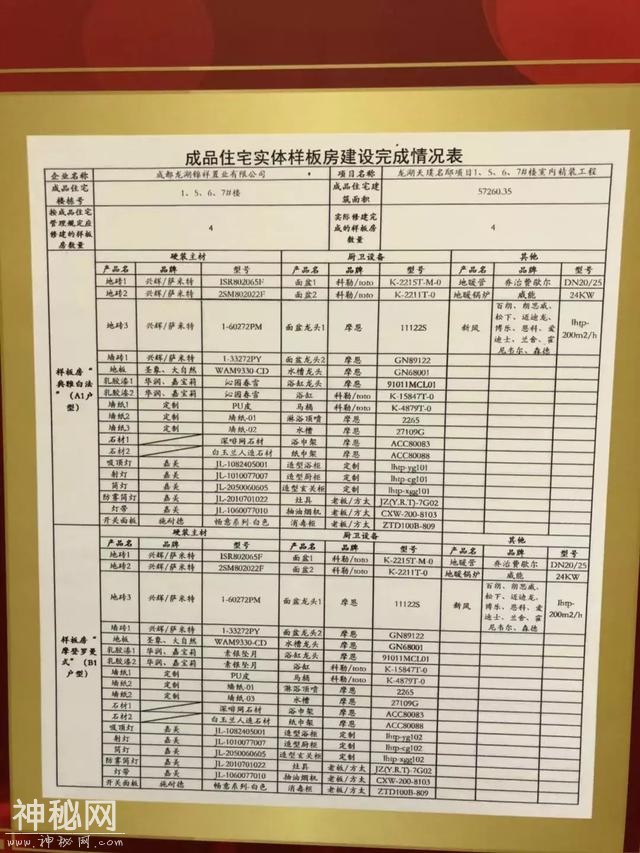 成品住宅实体样板房建设完成情况表
企业名称 成都龙湖锦祥置业有限公司 项目名称 龙湖天璞名邸项目1、5、6、7#楼室内精装工程
成品住宅楼栋号 1、5、6、7#楼 成品住宅建筑面积 57260.35
按成品住宅管理规定应修建的样板房数量 4 实际修建完成的样板房数量 4
样板房“典雅白法”（A1户型）
硬装主材 厨卫设备 其他
产品名 品牌 型号 产品名 品牌 型号 产品名 品牌 型号
地砖1 兴辉/萨米特 ISR802065F 面盆1 科勒/toto K-2215T-M-0 地暖管 乔治费歇尔 DN20/25
地砖2 兴辉/萨米特 2SM802022F 面盆2 科勒/toto K-2211T-0 地暖锅炉 威能 24KW
地砖3 兴辉/萨米特 1-60272PM 面盆龙头1 摩恩 11122S 新风 百朗、朗思威、松下、迈迪龙、博乐、恩科、爱迪士、兰舍、霍尼韦尔、森德 lhtp-200m2/h
墙砖1 兴辉/萨米特 1-33272PY 面盆龙头2 摩恩 GN89122
地板 圣象、大自然 WAM9330-CD 水槽龙头 摩恩 GN68001
乳胶漆1 华润、嘉宝莉 沁园春雪 浴缸龙头 摩恩 91011MCL01
乳胶漆2 华润、嘉宝莉 沁园春雪 浴缸 科勒/toto K-15847T-0
墙纸1 定制 PU皮 马桶 科勒/toto K-4879T-0
墙纸2 定制 墙纸-01 淋浴顶喷 摩恩 2265
墙纸3 定制 墙纸-02 水槽 摩恩 27109G
石材1 深啡网石材 浴巾架 摩恩 ACC80083
石材2 白玉兰人造石材 纸巾架 摩恩 ACC80088
吸顶灯 嘉美 JL-1082405001 造型浴柜 定制 lhtp-yg101
射灯 嘉美 JL-1010077007 造型厨柜 定制 lhtp-cg101
筒灯 嘉美 JL-2050060605 造型玄关柜 定制 lhtp-xgg101
防雾筒灯 嘉美 JL-2010701022 灶具 老板/方太 JZ(Y.R.T)-7G02
灯带 嘉美 JL-1060077010 抽油烟机 老板/方太 CXW-200-8103
开关面板 施耐德 畅意系列-白色 消毒柜 老板/方太 ZTD100B-809
样板房“摩登罗曼式”（B1户型）
硬装主材 厨卫设备 其他
产品名 品牌 型号 产品名 品牌 型号 产品名 品牌 型号
地砖1 兴辉/萨米特 ISR802065F 面盆1 科勒/toto K-2215T-M-0 地暖管 乔治费歇尔 DN20/25
地砖2 兴辉/萨米特 2SM802022F 面盆2 科勒/toto K-2211T-0 地暖锅炉 威能 24KW
地砖3 兴辉/萨米特 1-60272PM 面盆龙头1 摩恩 11122S 新风 百朗、朗思威、松下、迈迪龙、博乐、恩科、爱迪士、兰舍、霍尼韦尔、森德 lhtp-200m2/h
墙砖1 兴辉/萨米特 1-33272PY 面盆龙头2 摩恩 GN89122
地板 圣象、大自然 WAM9330-CD 水槽龙头 摩恩 GN68001
乳胶漆1 华润、嘉宝莉 素银坠月 浴缸龙头 摩恩 91011MCL01
乳胶漆2 华润、嘉宝莉 素银坠月 浴缸 科勒/toto K-15847T-0
墙纸1 定制 PU皮 马桶 科勒/toto K-4879T-0
墙纸2 定制 墙纸-01 淋浴顶喷 摩恩 2265
墙纸2 定制 墙纸-03 水槽 摩恩 27109G
石材1 深啡网石材 浴巾架 摩恩 ACC80083
石材2 白玉兰人造石材 纸巾架 摩恩 ACC80088
吸顶灯 嘉美 JL-1082405001 造型浴柜 定制 lhtp-yg102
射灯 嘉美 JL-1010077007 造型厨柜 定制 lhtp-cg102
筒灯 嘉美 JL-2050060605 造型玄关柜 定制 lhtp-xgg102
防雾筒灯 嘉美 JL-2010701022 灶具 老板/方太 JZ(Y.R.T)-7G02
灯带 嘉美 JL-1060077010 抽油烟机 老板/方太 CXW-200-8103
开关面板 施耐德 畅意系列-白色 消毒柜 老板/方太 ZTD100B-809
神秘网
www.神秘网.com